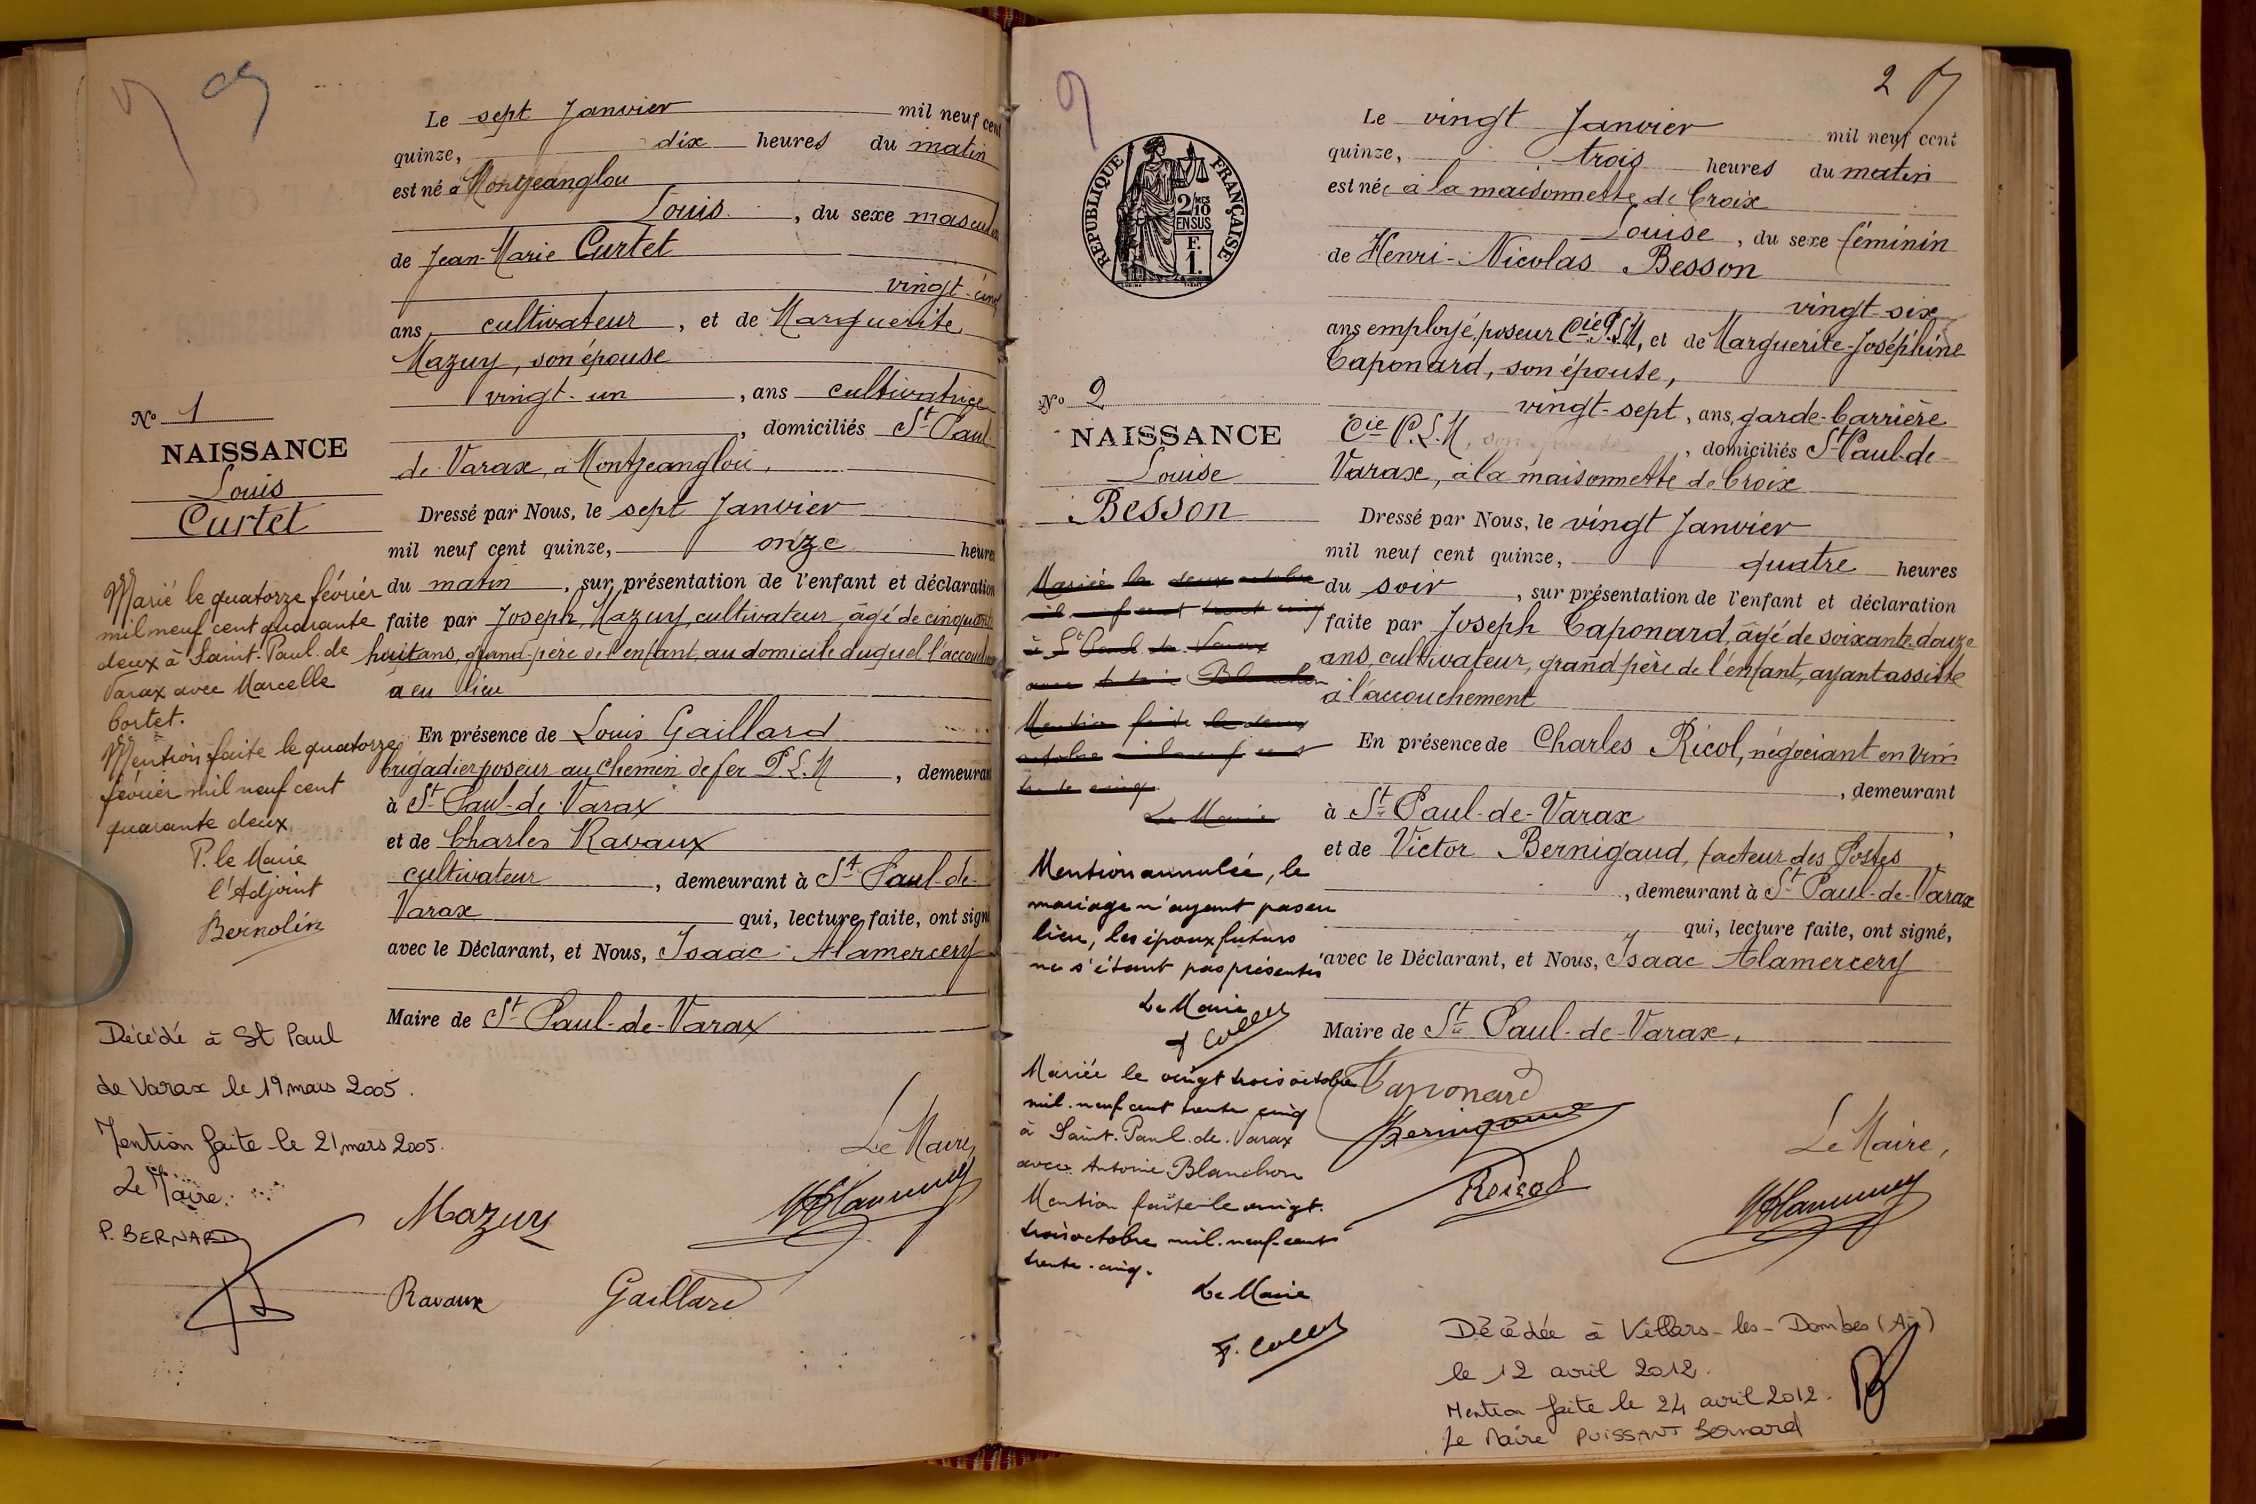 Le sept Janvier mil neuf cent
quinze, dix heures du matin
est né à Montjeanglou
Louis, du sexe masculin
de Jean-Marie Curtet
vingt-cinq
ans cultivateur, et de Marguerite
Mazuy, son épouse
vingt-un, ans cultivatrice
, domiciliés St Paul-
de-Varax, à Montjeanglou,
Dressé par Nous, le sept Janvier
mil neuf cent quinze, onze heures
du matin, sur présentation de l'enfant et déclaration
faite par Joseph Mazuy, cultivateur, âgé de cinquante
huit ans, grand-père de l'enfant, au domicile duquel l'accouchement
a eu lieu
En présence de Louis Gaillard
brigadier poseur au Chemin de fer P.L.M, demeurant
à St Paul-de-Varax
et de Charles Ravaux
cultivateur, demeurant à St Paul-de-
Varax qui, lecture faite, ont signé
avec le Déclarant, et Nous, Isaac Alamercery
Maire de St Paul-de-Varax
Le Maire,
Mazuy
Ravaux Gaillard
No 1
NAISSANCE
Louis
Curtet
Marié le quatorze février
mil neuf cent quarante
deux à Saint-Paul-de
Varax avec Marcelle
Cortet.
Mention faite le quatorze
février mil neuf cent
quarante deux
P. le Maire
l'Adjoint
Bernolin
Décédé à St Paul
de Varax le 19 mars 2005.
Mention faite le 21 mars 2005.
Le Maire.
P. BERNARD
2
Le vingt Janvier mil neuf cent
quinze, trois heures du matin
est née à la maisonnette de Croix
Louise, du sexe féminin
de Henri-Nicolas Besson
vingt-six
ans employé, poseur Cie P.L.M, et de Marguerite-Joséphine
Caponard, son épouse,
vingt-sept, ans, garde-barrière
Cie P.L.M, domiciliés St Paul-de-
Varax, à la maisonnette de Croix
Dressé par Nous, le vingt Janvier
mil neuf cent quinze, quatre heures
du soir, sur présentation de l'enfant et déclaration
faite par Joseph Caponard, âgé de soixante-douze
ans, cultivateur, grand père de l'enfant, ayant assisté
à l'accouchement
En présence de Charles Ricol, négociant en vins
, demeurant
à St Paul-de-Varax,
et de Victor Bernigaud, facteur des Postes
, demeurant à St Paul-de-Varax
qui, lecture faite, ont signé,
avec le Déclarant, et Nous, Isaac Alamercery
Maire de St Paul-de-Varax,
Caponard
Bernigaud
Ricol
Le Maire,
RÉPUBLIQUE FRANÇAISE
2/10
EN SUS
F.
1.
No 2
NAISSANCE
Louise
Besson
Mariée le deux octobre
mil neuf cent trente cinq
à St Paul de Varax
avec Antoine Blanchon
Mention faite le deux
octobre mil neuf cent
trente cinq.
Le Maire
Mention annulée, le
mariage n'ayant pas eu
lieu, les époux futurs
ne s'étant pas présentés
Le Maire
Mariée le vingt trois octobre
mil neuf cent trente cinq
à Saint-Paul-de-Varax
avec Antoine Blanchon
Mention faite le vingt
trois octobre mil-neuf-cent
trente-cinq.
Le Maire
Décédée à Villars-les-Dombes (Ain)
le 12 avril 2012.
Mention faite le 24 avril 2012.
Le Maire PUISSANT Bernard